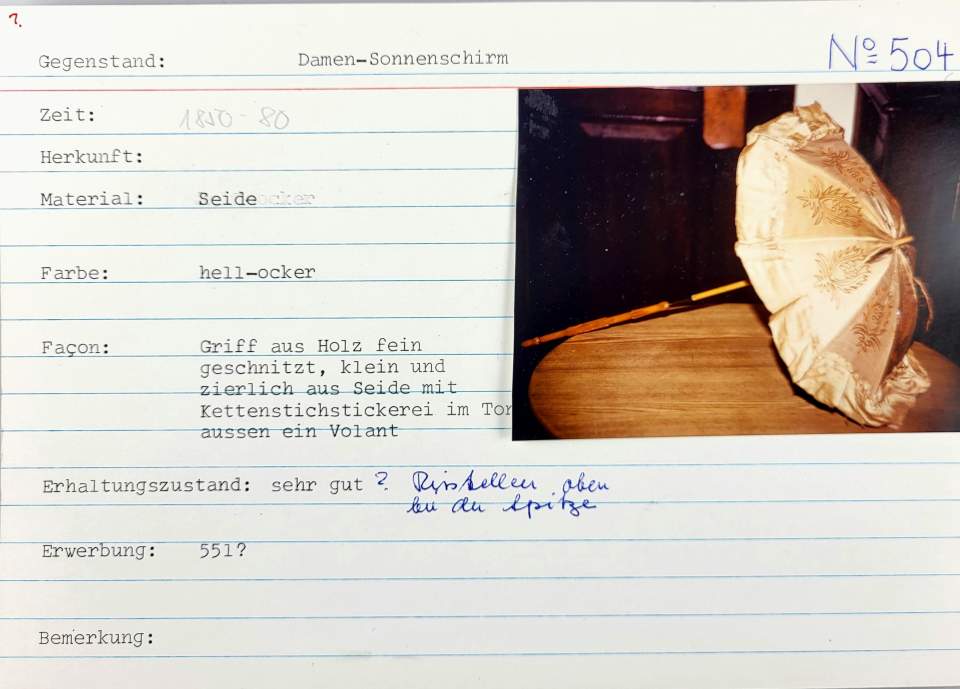 ?
Gegenstand: Damen-Sonnenschirm Nº 504
Zeit: 1850-80
Herkunft:
Material: Seide ocker
Farbe: hell-ocker
Façon: Griff aus Holz fein
geschnitzt, klein und
zierlich aus Seide mit
Kettenstichstickerei im Ton
aussen ein Volant
Erhaltungszustand: sehr gut ? Risstellen oben
bei der Spitze
Erwerbung: 551?
Bemerkung: